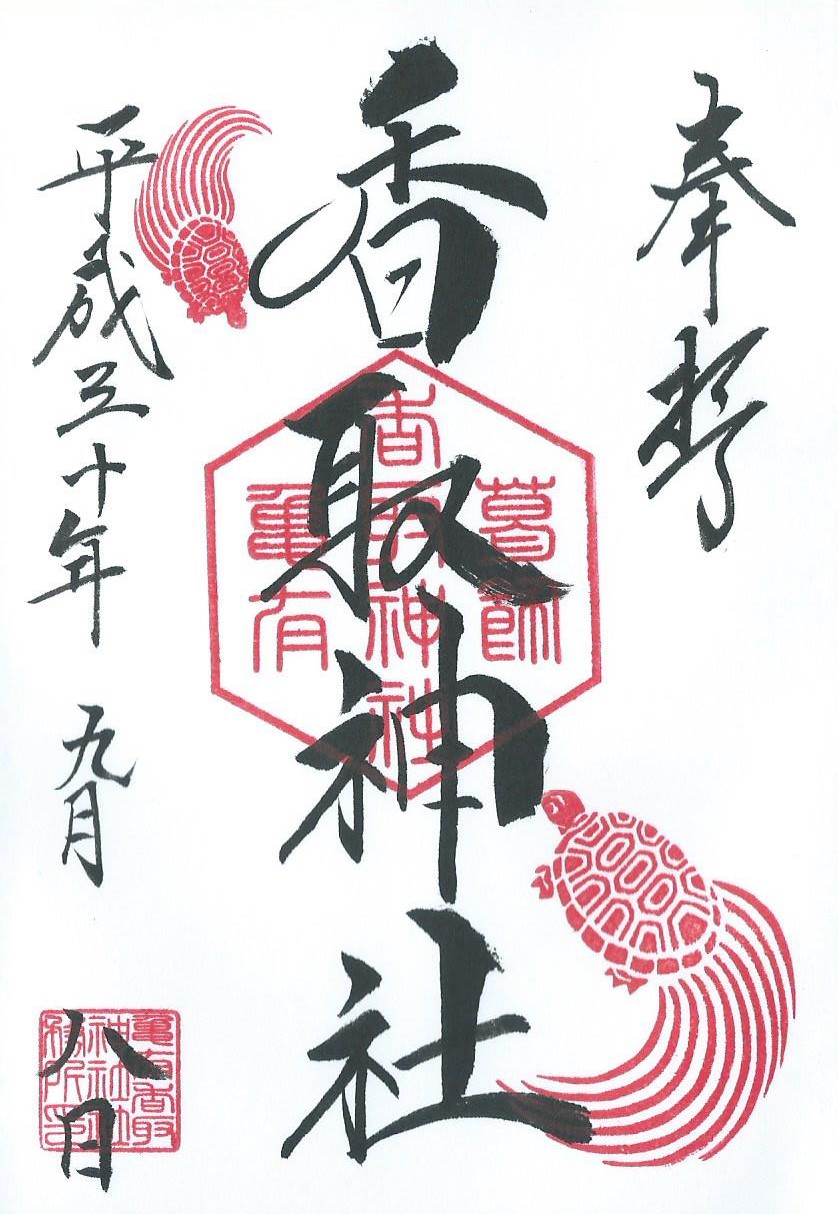 奉拝
香取神社
平成三十年 九月 八日
葛飾
香取神社
亀有
亀有香取
神社